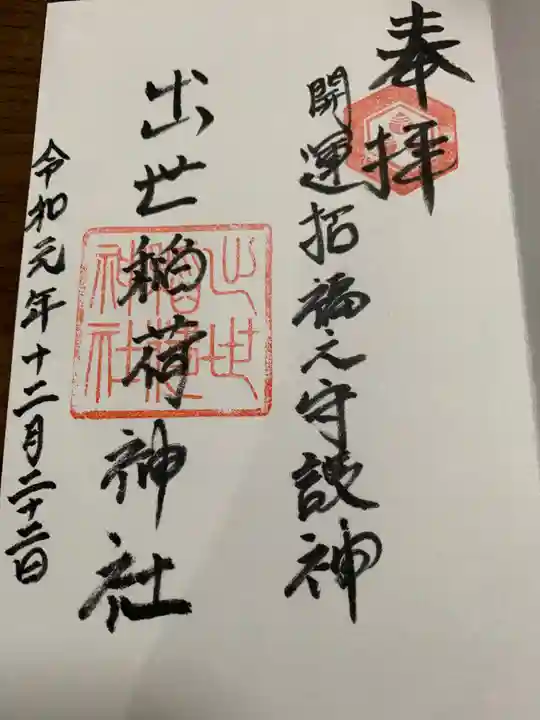 奉拝
開運招福之守護神
出世稲荷神社
出世稲荷神社
令和元年十二月二十二日